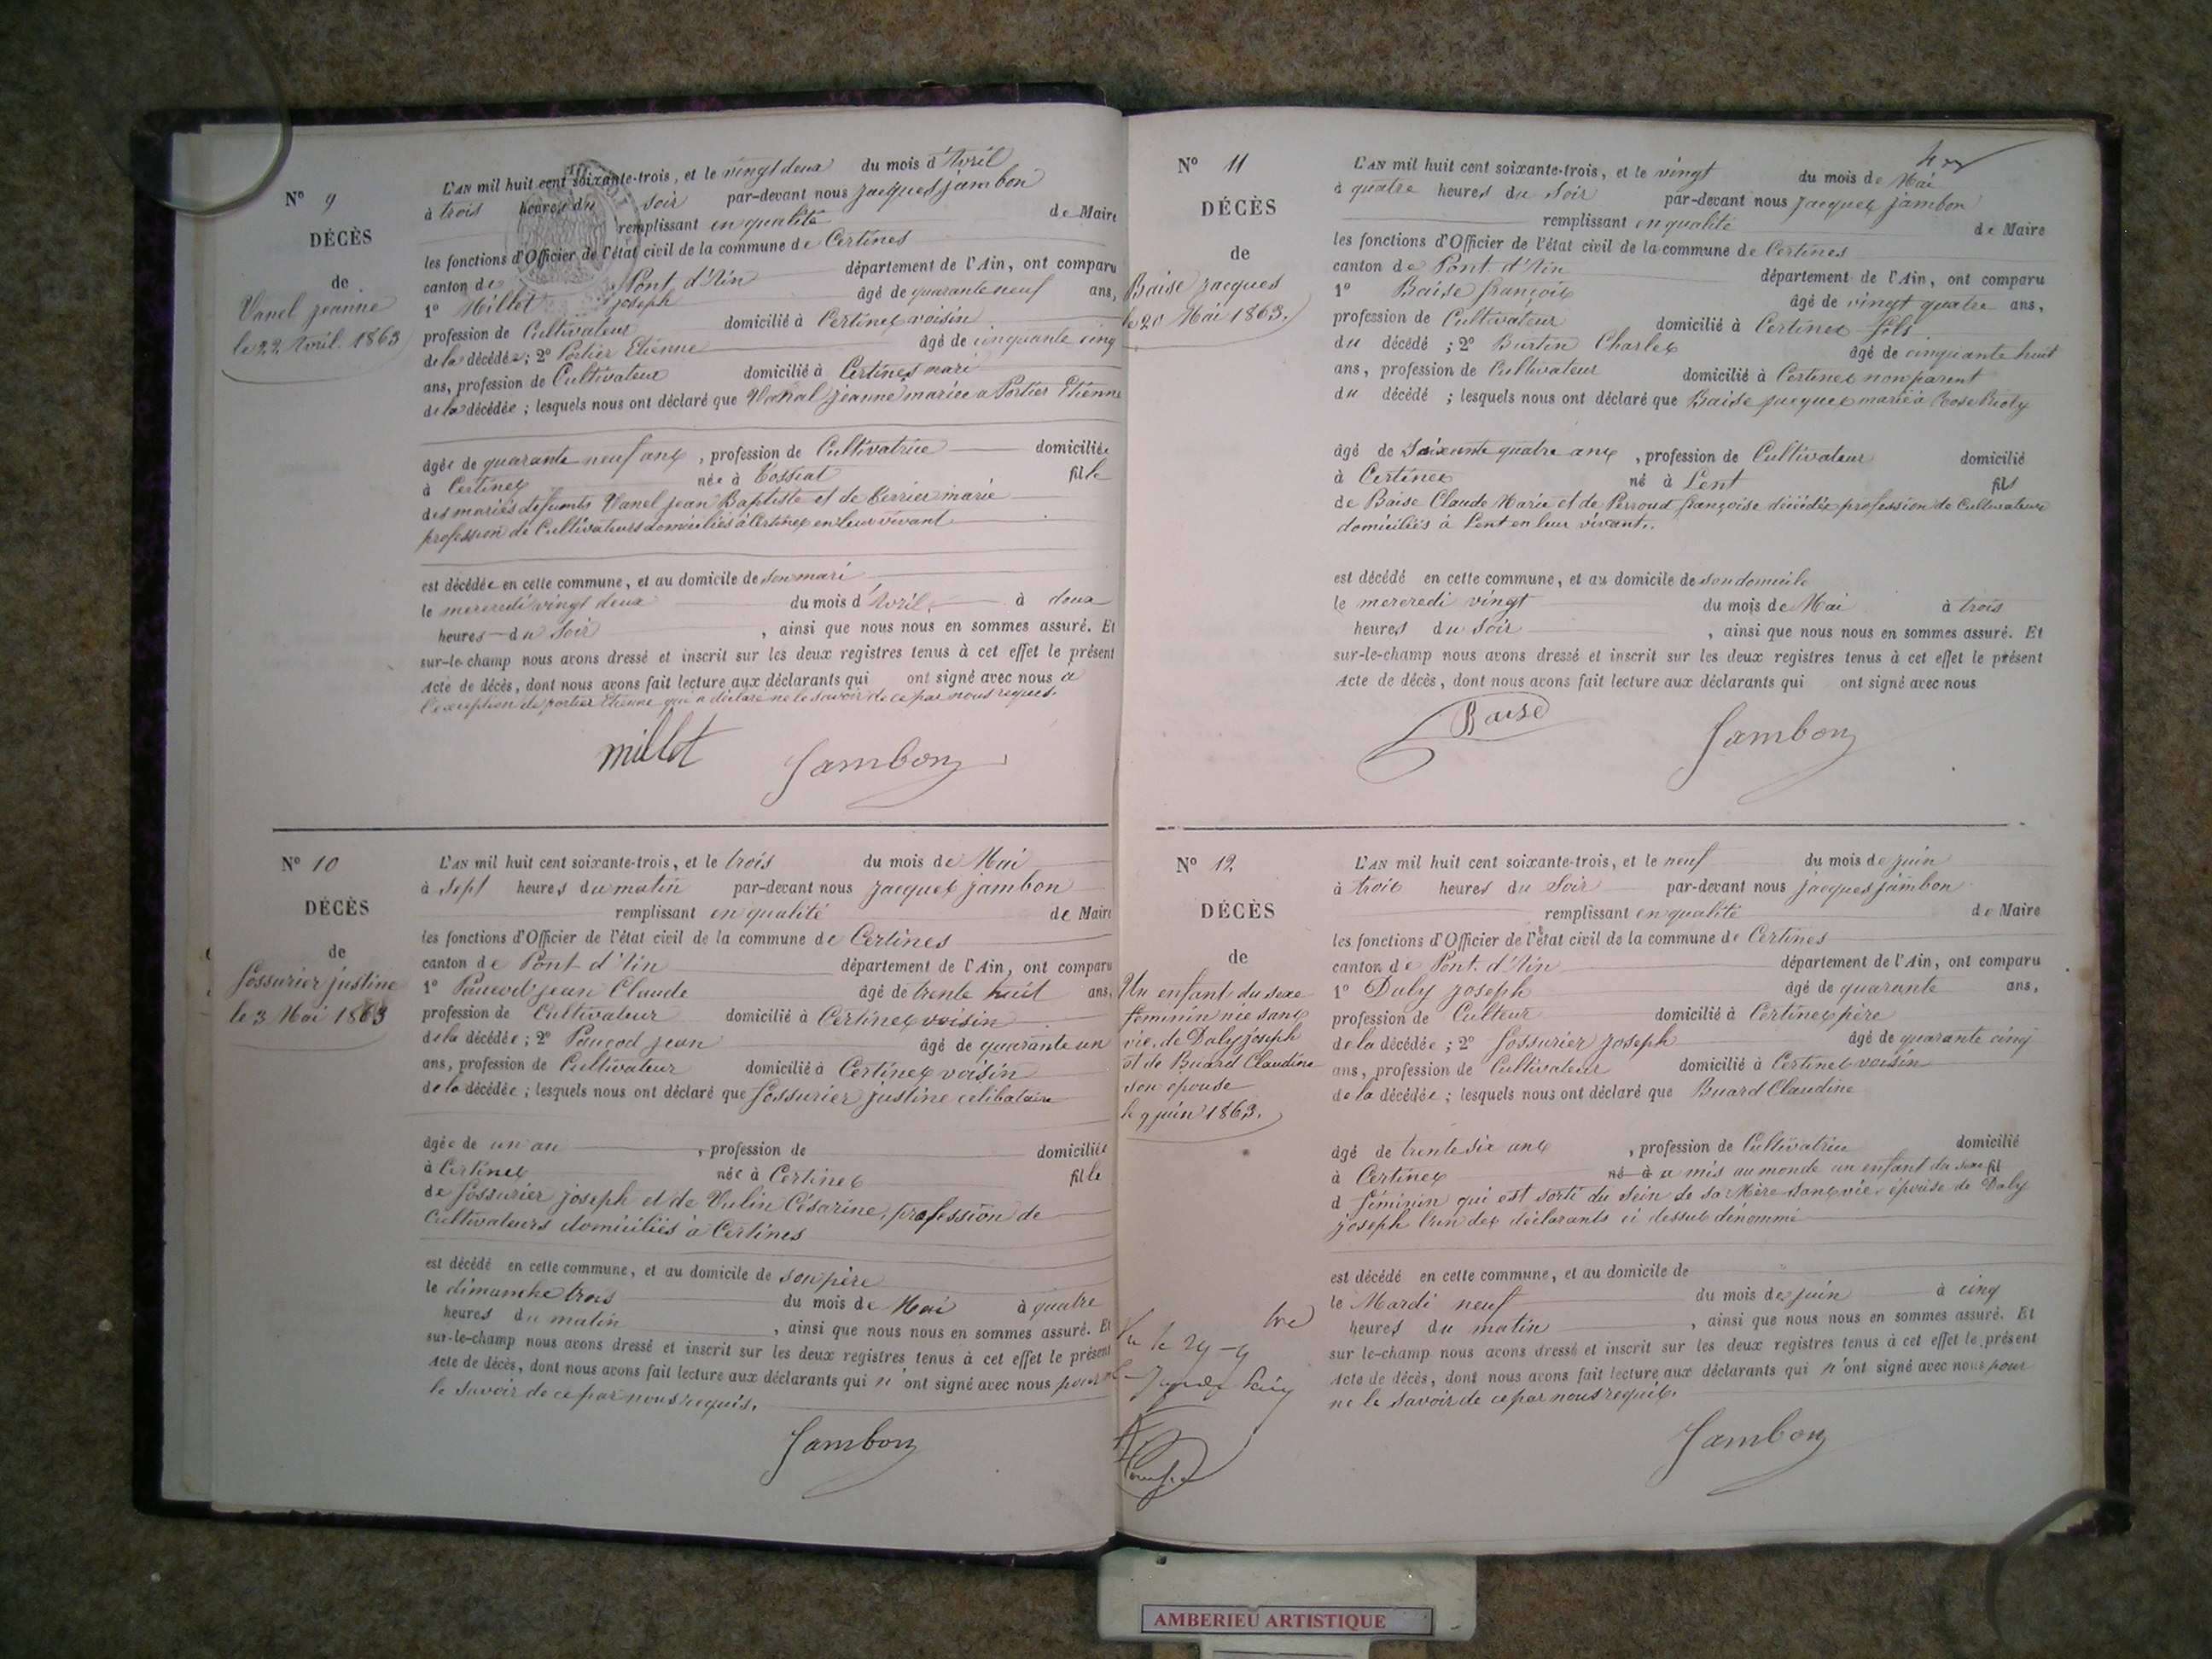 N° 9
DÉCÈS
de
Vanel jeanne
le 22 Avril 1863
L'AN mil huit cent soixante-trois, et le vingt deux du mois d'Avril
à trois heures du soir par-devant nous jacques jambon
remplissant en qualité de Maire
les fonctions d'Officier de l'état civil de la commune de Certines
canton de Pont d'Ain département de l'Ain, ont comparu
1° Millet joseph âgé de quarante neuf ans,
profession de Cultivateur domicilié à Certines voisin
de la décédée; 2° Portier Etienne âgé de cinquante cinq
ans, profession de Cultivateur domicilié à Certines mari
de la décédée; lesquels nous ont déclaré que Vanel jeanne mariée a Portier Etienne
âgée de quarante neuf ans, profession de Cultivatrice domiciliée
à Certines née à Tossiat fille
des mariés défunts Vanel jean Baptiste et de Perrier marie
profession de Cultivateurs domiciliés à Certines en leur vivant
est décédée en cette commune, et au domicile de son mari
le mercredi vingt deux du mois d'Avril, à deux
heures du soir, ainsi que nous nous en sommes assuré. Et
sur-le-champ nous avons dressé et inscrit sur les deux registres tenus à cet effet le présent
Acte de décès, dont nous avons fait lecture aux déclarants qui ont signé avec nous a
l'exception de portier Etienne qui a déclaré ne le savoir de ce par nous requis.
millet Jambon
N° 10
DÉCÈS
de
Fossurier justine
le 3 Mai 1863
L'AN mil huit cent soixante-trois, et le trois du mois de Mai
à sept heures du matin par-devant nous jacques jambon
remplissant en qualité de Maire
les fonctions d'Officier de l'état civil de la commune de Certines
canton de Pont d'Ain département de l'Ain, ont comparu
1° Paucod jean Claude âgé de trente huit ans,
profession de Cultivateur domicilié à Certines voisin
de la décédée; 2° Paucod jean âgé de quarante un
ans, profession de Cultivateur domicilié à Certines voisin
de la décédée; lesquels nous ont déclaré que Fossurier justine célibataire
âgée de un an, profession de domiciliée
à Certines née à Certines fille
de Fossurier joseph et de Vulin Césarine, profession de
Cultivateurs domiciliés à Certines
est décédé en cette commune, et au domicile de son père
le dimanche trois du mois de Mai à quatre
heures du matin, ainsi que nous nous en sommes assuré. Et
sur-le-champ nous avons dressé et inscrit sur les deux registres tenus à cet effet le présent
Acte de décès, dont nous avons fait lecture aux déclarants qui n'ont signé avec nous pour ne
le savoir de ce par nous requis.
Jambon
N° 11
DÉCÈS
de
Baise jacques
le 20 Mai 1863.
L'AN mil huit cent soixante-trois, et le vingt du mois de Mai
à quatre heures du Soir par-devant nous jacques jambon
remplissant en qualité de Maire
les fonctions d'Officier de l'état civil de la commune de Certines
canton de Pont d'Ain département de l'Ain, ont comparu
1° Baise françois âgé de vingt quatre ans,
profession de Cultivateur domicilié à Certines fils
du décédé; 2° Burtin Charles âgé de cinquante huit
ans, profession de Cultivateur domicilié à Certines non parent
du décédé; lesquels nous ont déclaré que Baise jacques marié à Rose
âgé de Soixante quatre ans, profession de Cultivateur domicilié
à Certines né à Lent fils
de Baise Claude Marie et de Perroud françoise décédés profession de Cultivateurs
domiciliés à Lent en leur vivant.
est décédé en cette commune, et au domicile de son domicile
le mercredi vingt du mois de Mai à trois
heures du Soir, ainsi que nous nous en sommes assuré. Et
sur-le-champ nous avons dressé et inscrit sur les deux registres tenus à cet effet le présent
Acte de décès, dont nous avons fait lecture aux déclarants qui ont signé avec nous
Baise Jambon
N° 12
DÉCÈS
de
Un enfant du sexe
féminin née sans
vie, de Daly joseph
et de Buard Claudine
son épouse
le 9 juin 1863.
L'AN mil huit cent soixante-trois, et le neuf du mois de juin
à trois heures du Soir par-devant nous jacques jambon
remplissant en qualité de Maire
les fonctions d'Officier de l'état civil de la commune de Certines
canton de Pont d'Ain département de l'Ain, ont comparu
1° Daly joseph âgé de quarante ans,
profession de Culteur domicilié à Certines père
de la décédée; 2° Fossurier joseph âgé de quarante cinq
ans, profession de Cultivateur domicilié à Certines voisin
de la décédée; lesquels nous ont déclaré que Buard Claudine
âgé de trente six ans, profession de Cultivatrice domicilié
à Certines né à a mis au monde un enfant du sexe fil
d féminin qui est sorti du sein de sa Mère sans vie, épouse de Daly
joseph l'un des déclarants ci dessus dénommé
est décédé en cette commune, et au domicile de
le Mardi neuf du mois de juin à cinq
heures du matin, ainsi que nous nous en sommes assuré. Et
sur-le-champ nous avons dressé et inscrit sur les deux registres tenus à cet effet le présent
Acte de décès, dont nous avons fait lecture aux déclarants qui n'ont signé avec nous pour
ne le savoir de ce par nous requis.
Jambon
AMBERIEU ARTISTIQUE